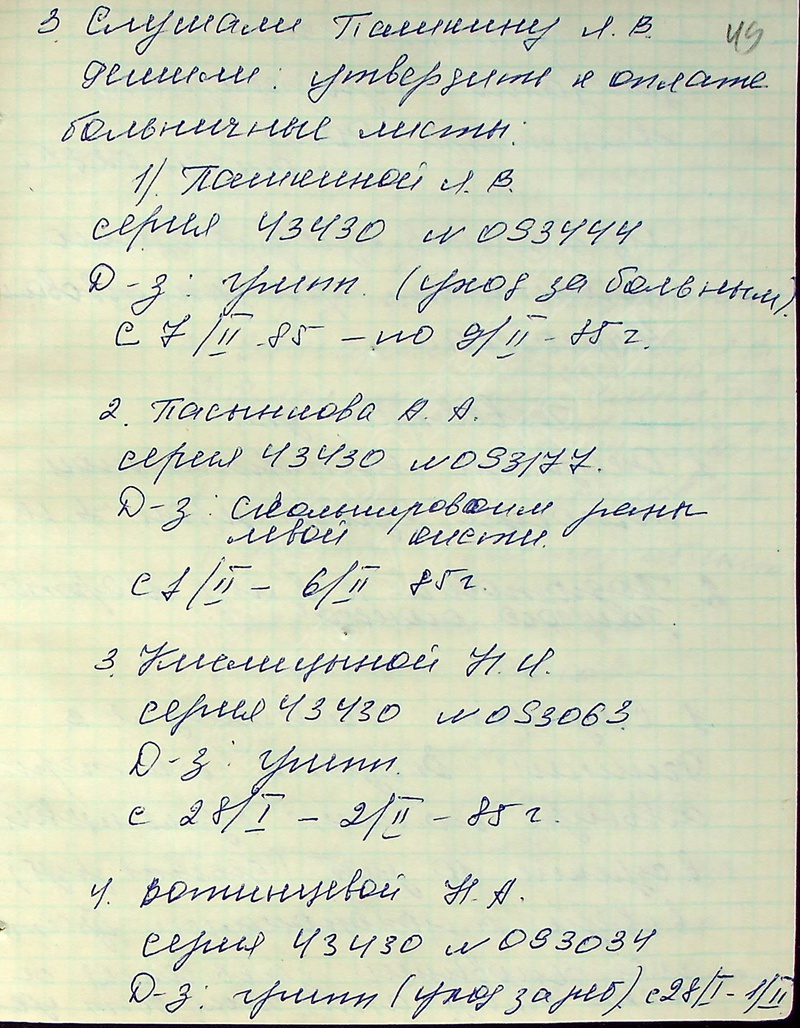 49
3. Слушали Пашкину Л. В.
решили: утвердить к оплате
больничные листы:
1) Пашкиной Л. В.
серия 43430 № 093444
Д-з: грипп. (уход за больным).
с 7/II 85 – по 9/II - 85 г.
2. Пасынкова А. А.
серия 43430 № 093177.
Д-з: раны
левой кисти.
6/II 85 г.
3. Кислицыной Н. И.
серия 43430 № 093063.
Д-з: грипп.
с 28/I – 2/II – 85 г.
4. Вотинцевой Н. А.
серия 43430 № 093034
Д-з: грипп (уход за реб). с 28/I - 1/II